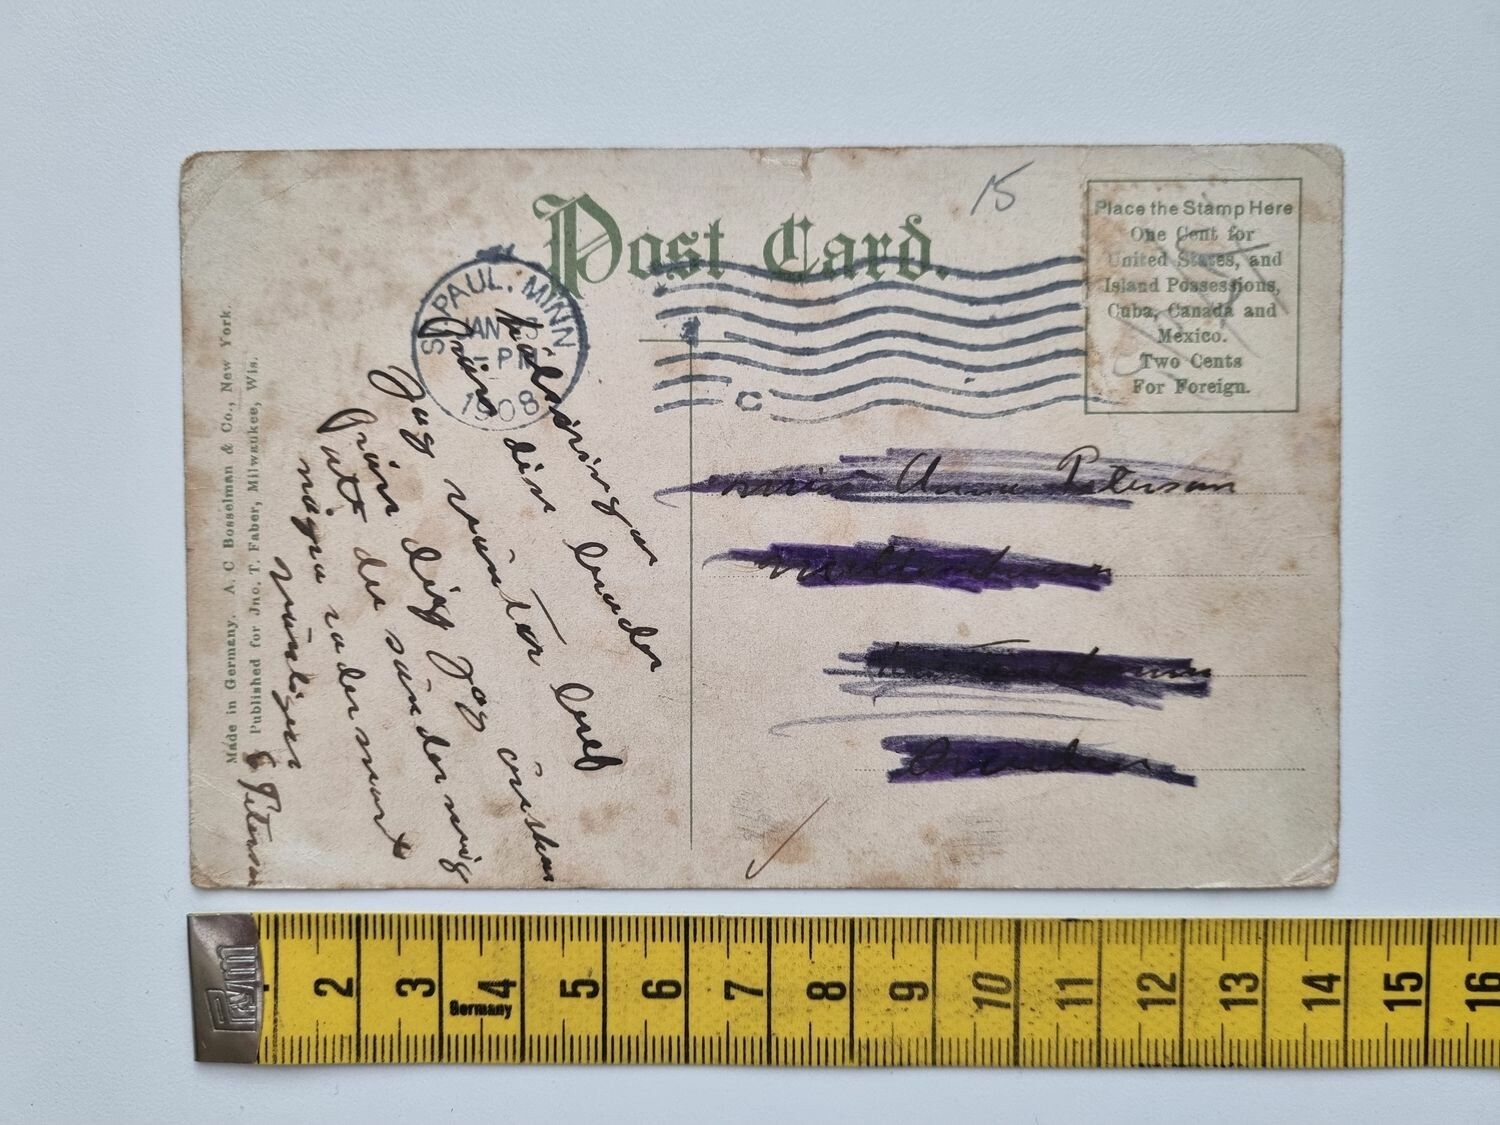 Post Card.
15
Place the Stamp Here
One Cent for
United States, and
Island Possessions,
Cuba, Canada and
Mexico.
Two Cents
For Foreign.
ST. PAUL. MINN
JAN
1908
C
Miss Anna Peterson
hälsningar
från din broder
Jag väntar bref
från dig Jag önskar
att du sänder mig
några
vänligen
C Peterson
Made in Germany. A. C Bosselman & Co., New York.
Published for Jno. T. Faber, Milwaukee, Wis.
Prym
Germany
2 3 4 5 6 7 8 9 10 11 12 13 14 15 16